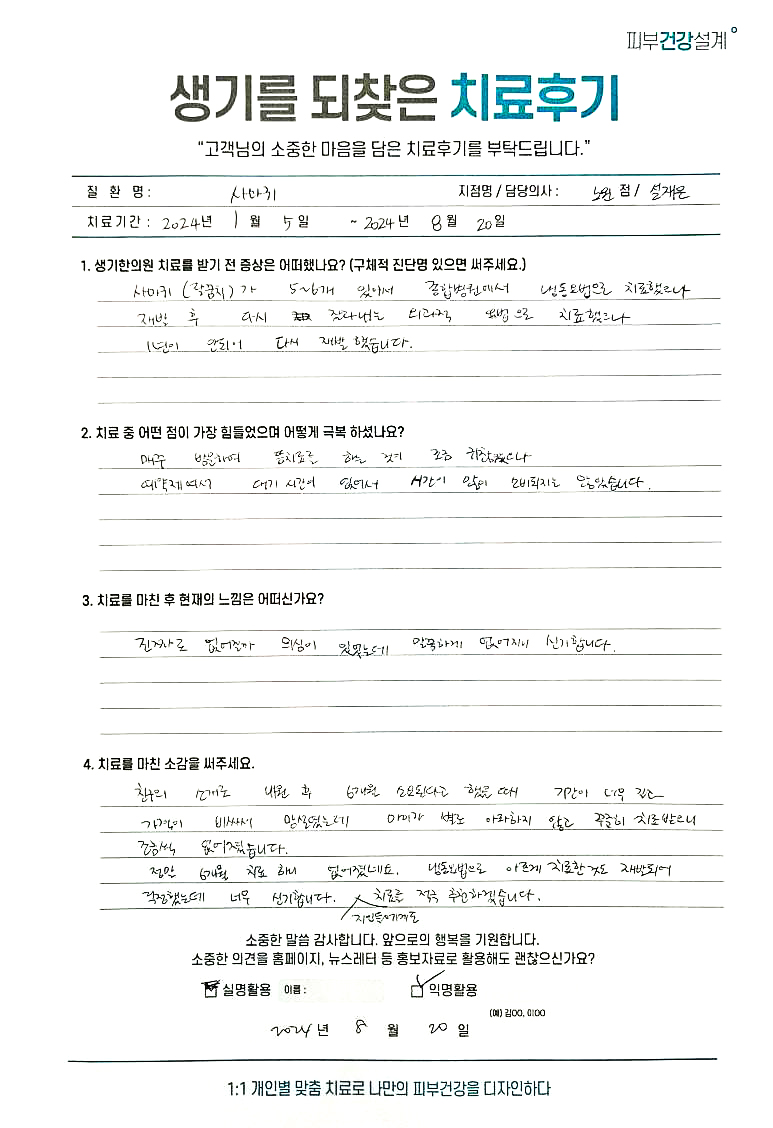 피부건강설계
생기를 되찾은 치료후기
“고객님의 소중한 마음을 담은 치료후기를 부탁드립니다.”
질 환 명 : 사마귀 지점명 / 담당의사 : 노원 점 / 설재은
치료기간 : 2024년 1 월 5 일 ~ 2024 년 8 월 20 일
1. 생기한의원 치료를 받기 전 증상은 어떠했나요? (구체적 진단명 있으면 써주세요.)
사마귀 (팔꿈치) 가 5~6개 있어서 종합병원에서 냉동요법으로 치료했으나
재발 후 다시 잘라내는 외과적 요법으로 치료했으나
1년이 안되어 다시 재발 했습니다.
2. 치료 중 어떤 점이 가장 힘들었으며 어떻게 극복 하셨나요?
매주 방문하여 뜸치료를 하는 것이 조금 귀찮았으나
예약제여서 대기 시간이 없어서 시간이 많이 소비되지는 않았습니다.
3. 치료를 마친 후 현재의 느낌은 어떠신가요?
진짜로 없어질까 의심이 있었는데 말끔하게 없어지니 신기합니다.
4. 치료를 마친 소감을 써주세요.
친구의 소개로 내원 후 6개월 소요된다고 했을 때 기간이 너무 길고
가격이 비싸서 망설였는데 아이가 별로 아파하지 않고 꾸준히 치료받으니
조금씩 없어졌습니다.
정말 6개월 치료 하니 없어졌네요. 냉동요법으로 아프게 치료한것도 재발되어
걱정했는데 너무 신기합니다. 지인들에게도 치료를 적극 추천하겠습니다.
소중한 말씀 감사합니다. 앞으로의 행복을 기원합니다.
소중한 의견을 홈페이지, 뉴스레터 등 홍보자료로 활용해도 괜찮으신가요?
실명활용 이름 : 익명활용
(예) 김OO, 이OO
2024 년 8 월 20 일
1:1 개인별 맞춤 치료로 나만의 피부건강을 디자인하다